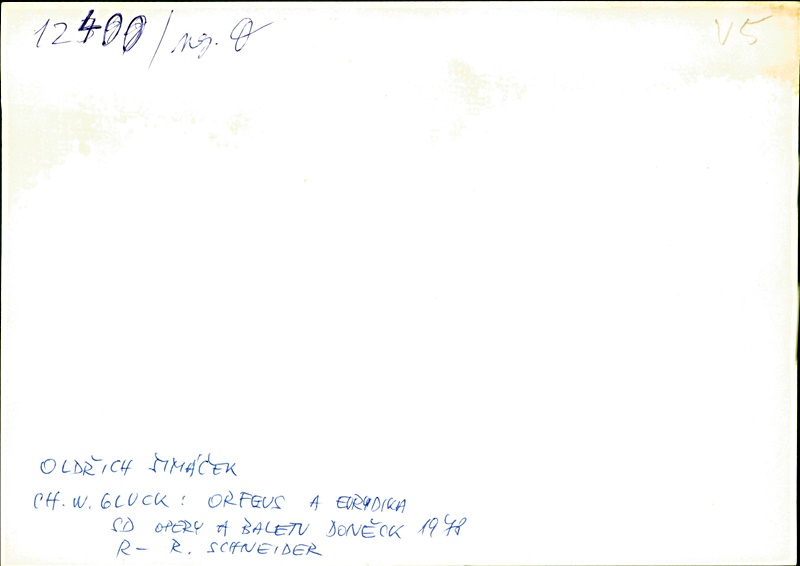 12400/
V5
OLDŘICH ŠIMÁČEK
CH. W. GLUCK: ORFEUS A EURYDIKA
SD OPERY A BALETU DONĚCK 1978
R- R. SCHNEIDER